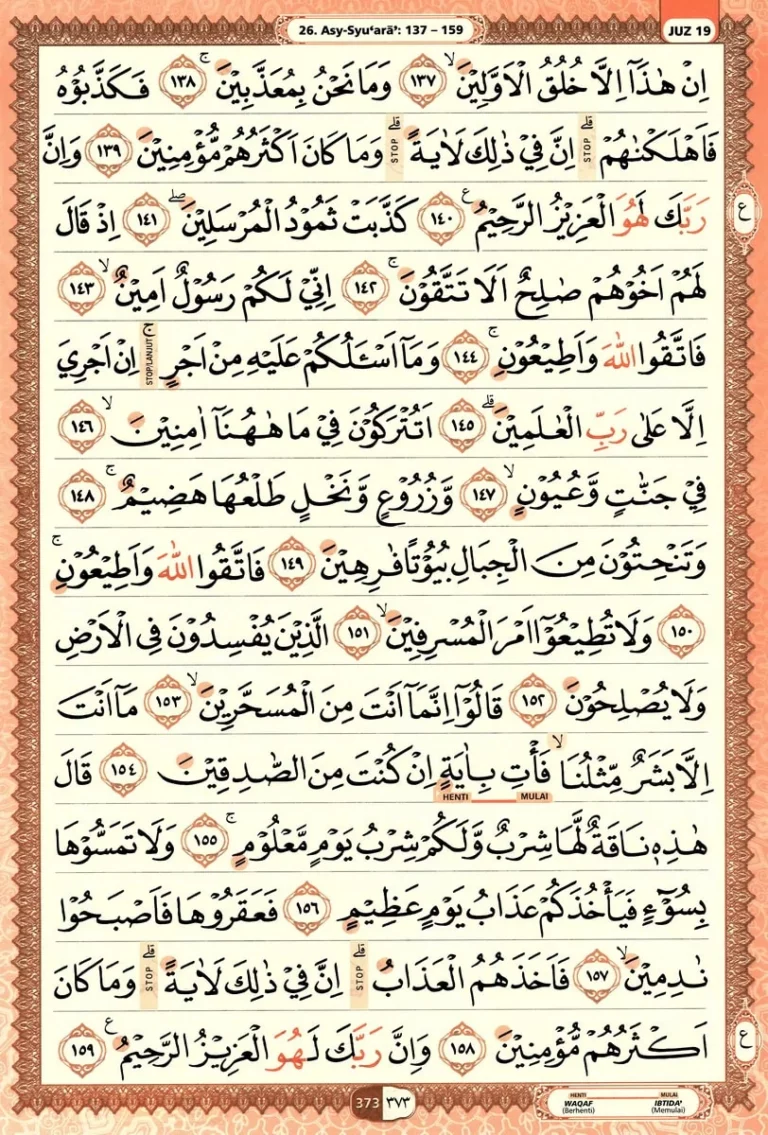 26. Asy-Syu‘arā’: 137 – 159
JUZ 19
اِنْ هٰذَآ اِلَّا خُلُقُ الْاَوَّلِيْنَ ۙ ١٣٧ وَمَا نَحْنُ بِمُعَذَّبِيْنَ ۚ ١٣٨ فَكَذَّبُوْهُ
فَاَهْلَكْنٰهُمْ ۗ STOP اِنَّ فِيْ ذٰلِكَ لَاٰيَةً ۗ STOP وَمَا كَانَ اَكْثَرُهُمْ مُّؤْمِنِيْنَ ١٣٩ وَاِنَّ
رَبَّكَ لَهُوَ الْعَزِيْزُ الرَّحِيْمُ ࣖ ١٤٠ كَذَّبَتْ ثَمُوْدُ الْمُرْسَلِيْنَ ۖ ١٤١ اِذْ قَالَ
ع
لَهُمْ اَخُوْهُمْ صٰلِحٌ اَلَا تَتَّقُوْنَ ۚ ١٤٢ اِنِّيْ لَكُمْ رَسُوْلٌ اَمِيْنٌ ۙ ١٤٣
فَاتَّقُوا اللّٰهَ وَاَطِيْعُوْنِ ۚ ١٤٤ وَمَآ اَسْـَٔلُكُمْ عَلَيْهِ مِنْ اَجْرٍ ۚ STOP/LANJUT اِنْ اَجْرِيَ
اِلَّا عَلٰى رَبِّ الْعٰلَمِيْنَ ۗ ١٤٥ اَتُتْرَكُوْنَ فِيْ مَا هٰهُنَآ اٰمِنِيْنَ ۙ ١٤٦
فِيْ جَنّٰتٍ وَّعُيُوْنٍ ۙ ١٤٧ وَّزُرُوْعٍ وَّنَخْلٍ طَلْعُهَا هَضِيْمٌ ۚ ١٤٨
وَتَنْحِتُوْنَ مِنَ الْجِبَالِ بُيُوْتًا فٰرِهِيْنَ ١٤٩ فَاتَّقُوا اللّٰهَ وَاَطِيْعُوْنِ ۚ
١٥٠ وَلَا تُطِيْعُوْٓا اَمْرَ الْمُسْرِفِيْنَ ۙ ١٥١ الَّذِيْنَ يُفْسِدُوْنَ فِى الْاَرْضِ
وَلَا يُصْلِحُوْنَ ١٥٢ قَالُوْٓا اِنَّمَآ اَنْتَ مِنَ الْمُسَحَّرِيْنَ ۙ ١٥٣ مَآ اَنْتَ
اِلَّا بَشَرٌ مِّثْلُنَا ۙ فَأْتِ بِاٰيَةٍ اِنْ كُنْتَ مِنَ الصّٰدِقِيْنَ ١٥٤ قَالَ
HENTI MULAI
هٰذِهٖ نَاقَةٌ لَّهَا شِرْبٌ وَّلَكُمْ شِرْبُ يَوْمٍ مَّعْلُوْمٍ ۚ ١٥٥ وَلَا تَمَسُّوْهَا
بِسُوْۤءٍ فَيَأْخُذَكُمْ عَذَابُ يَوْمٍ عَظِيْمٍ ١٥٦ فَعَقَرُوْهَا فَاَصْبَحُوْا
نٰدِمِيْنَ ۙ ١٥٧ فَاَخَذَهُمُ الْعَذَابُ ۗ STOP اِنَّ فِيْ ذٰلِكَ لَاٰيَةً ۗ STOP وَمَا كَانَ
اَكْثَرُهُمْ مُّؤْمِنِيْنَ ١٥٨ وَاِنَّ رَبَّكَ لَهُوَ الْعَزِيْزُ الرَّحِيْمُ ࣖ ١٥٩
ع
373 ٣٧٣
HENTI MULAI
WAQAF IBTIDA'
(Berhenti) (Memulai)